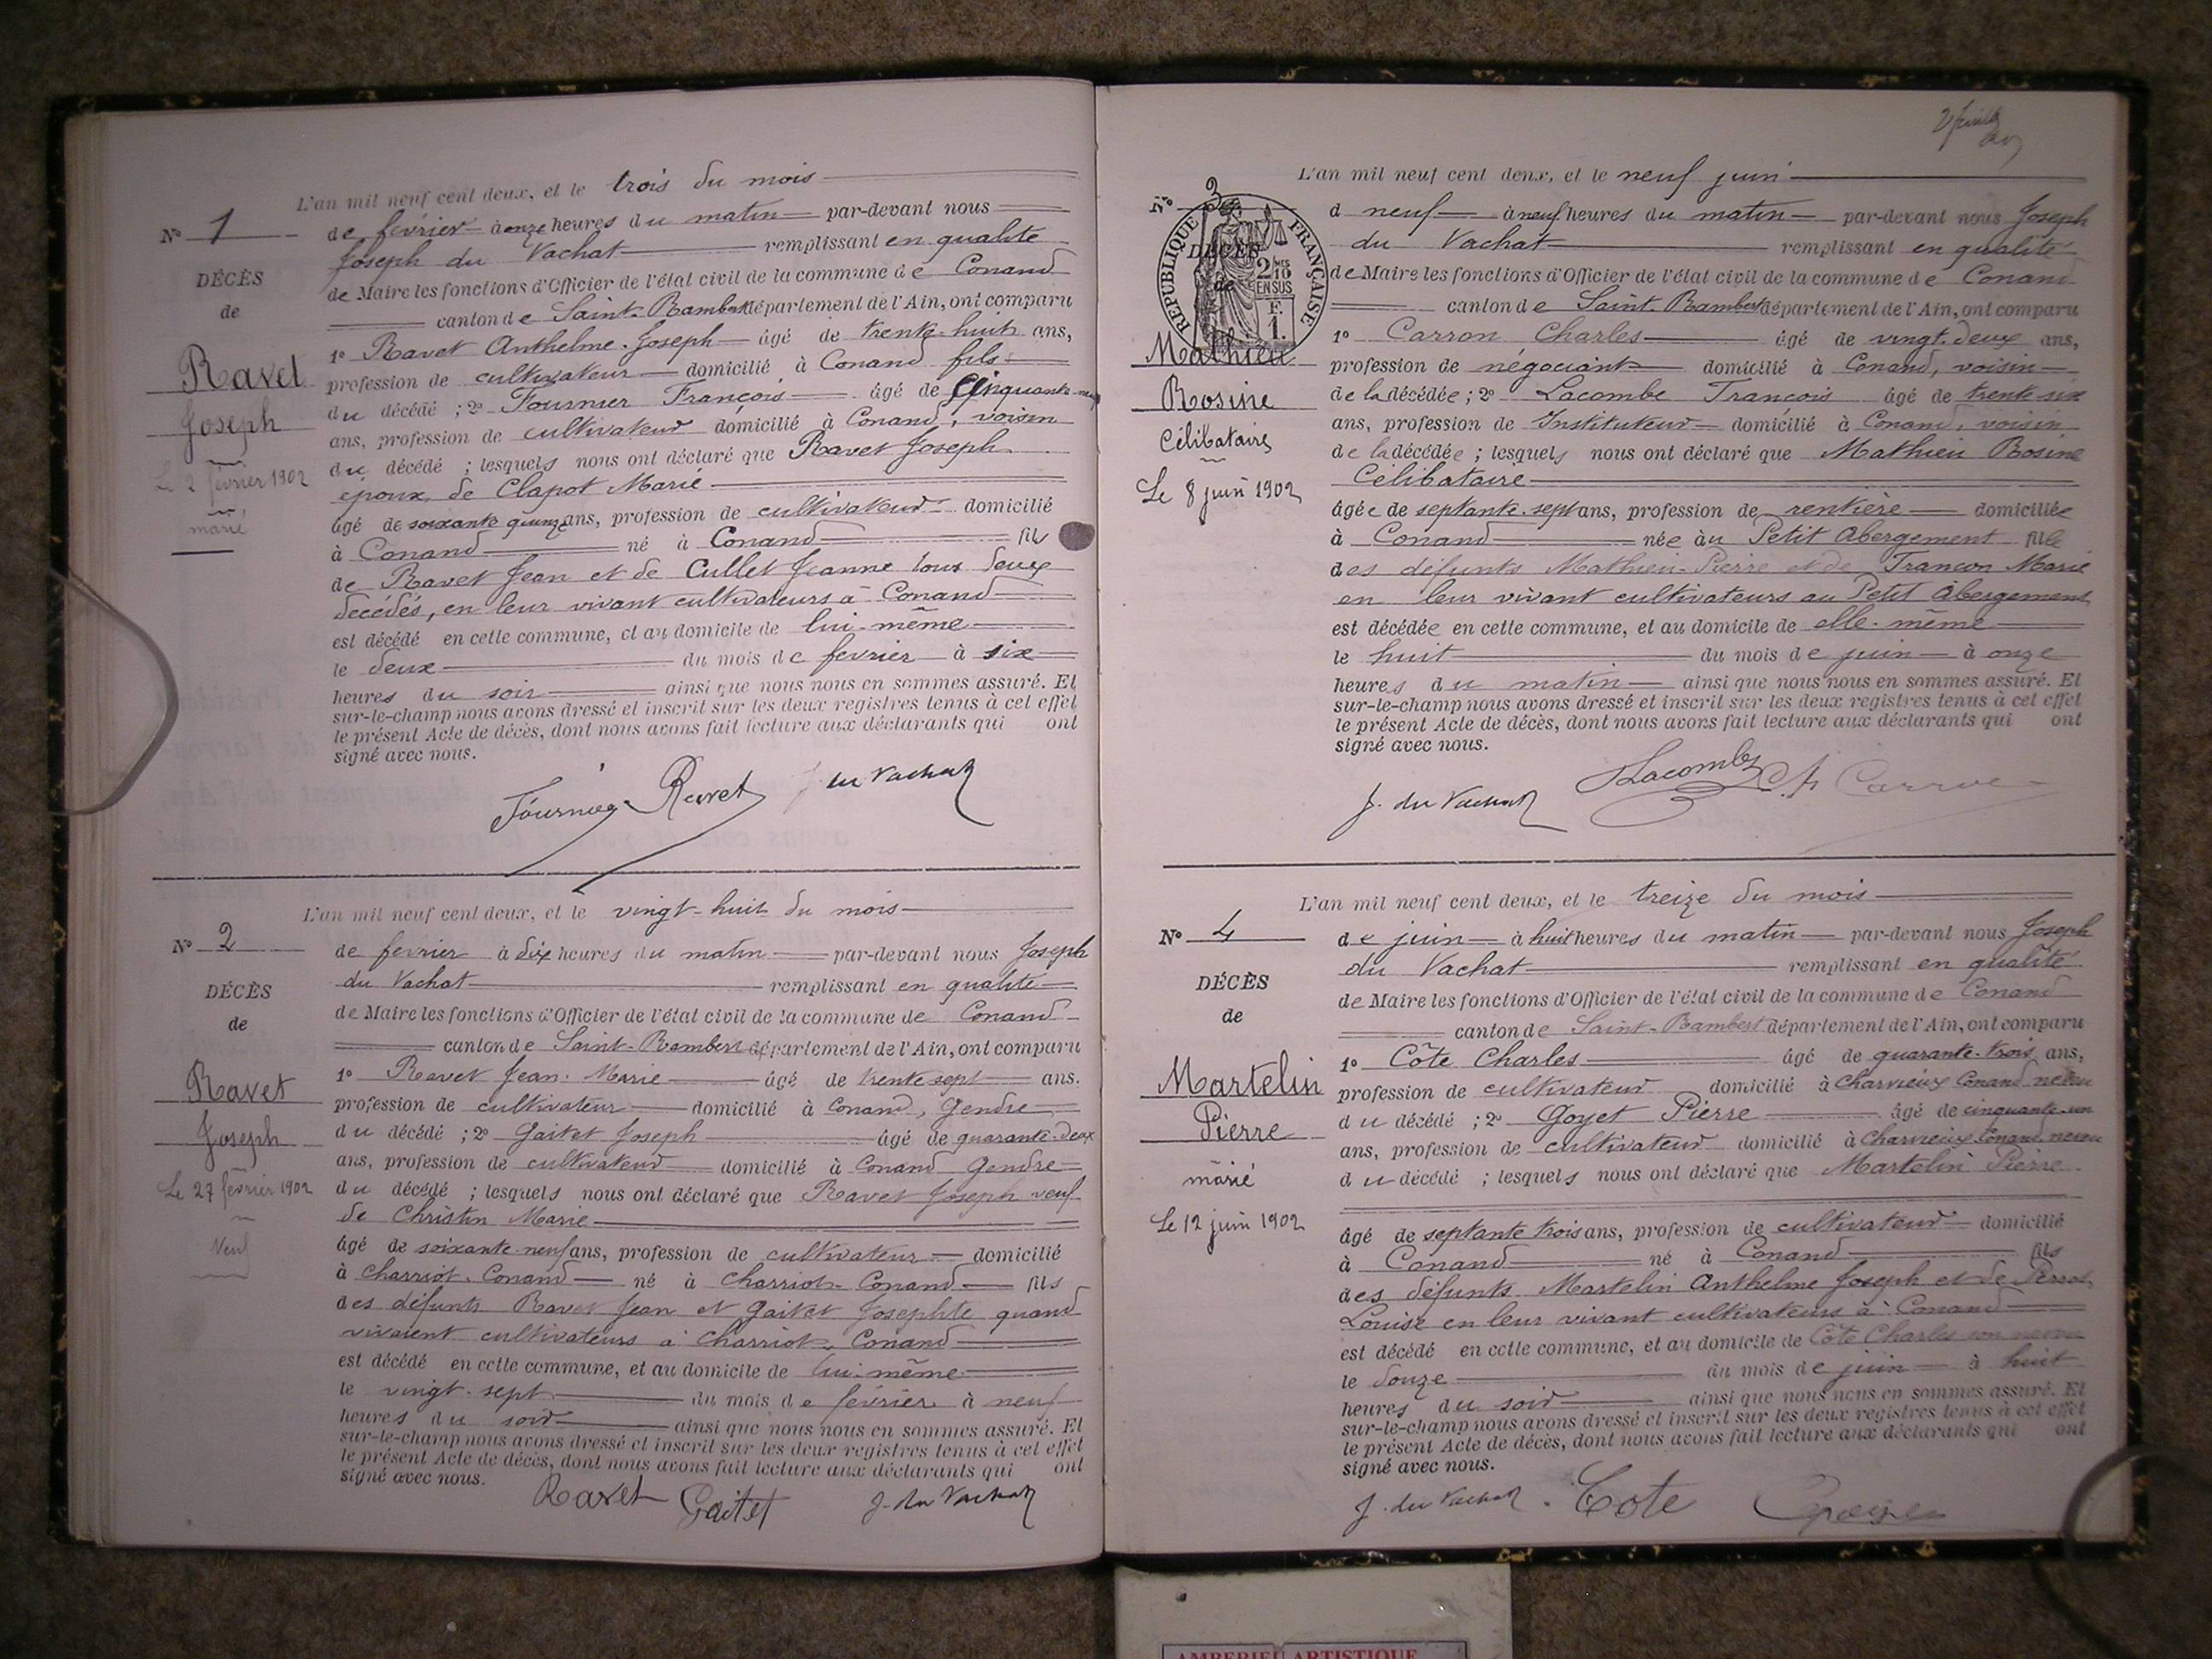 L'an mil neuf cent deux, et le trois du mois
N° 1
de février à onze heures du matin par-devant nous
Joseph du Vachat remplissant en qualité
DÉCÈS
de Maire les fonctions d'Officier de l'état civil de la commune de Conand
de
canton de Saint-Rambert département de l'Ain, ont comparu
1° Ravet Anthelme Joseph âgé de trente-huit ans,
Ravet
profession de cultivateur domicilié à Conand fils
du décédé ; 2° Fournier François âgé de cinquante-neuf
Joseph
ans, profession de cultivateur domicilié à Conand, voisin
du décédé ; lesquels nous ont déclaré que Ravet Joseph
Le 2 février 1902
époux de Clapot Marie
marié
âgé de soixante quinze ans, profession de cultivateur domicilié
à Conand né à Conand fils
de Ravet Jean et de Cullet Jeanne tous deux
décédés, en leur vivant cultivateurs à Conand
est décédé en cette commune, et au domicile de lui-même
le deux du mois de fevrier à six
heures du soir ainsi que nous nous en sommes assuré. Et
sur-le-champ nous avons dressé et inscrit sur les deux registres tenus à cet effet
le présent Acte de décès, dont nous avons fait lecture aux déclarants qui ont
signé avec nous.
Fournier Ravet J. du Vachat
L'an mil neuf cent deux, et le vingt-huit du mois
N° 2
de fevrier à dix heures du matin par-devant nous Joseph
du Vachat remplissant en qualité
DÉCÈS
de Maire les fonctions d'Officier de l'état civil de la commune de Conand
de
canton de Saint-Rambert département de l'Ain, ont comparu
1° Ravet Jean-Marie âgé de trente sept ans.
Ravet
profession de cultivateur domicilié à Conand, Gendre
Joseph
du décédé ; 2° Gaitet Joseph âgé de quarante-deux
ans, profession de cultivateur domicilié à Conand Gendre
Le 27 février 1902
du décédé ; lesquels nous ont déclaré que Ravet Joseph veuf
de Christin Marie
Veuf
âgé de soixante-neuf ans, profession de cultivateur domicilié
à Charriot-Conand né à Charriot-Conand fils
des défunts Ravet Jean et Gaitet Josephte quand
vivaient cultivateurs à Charriot-Conand
est décédé en cette commune, et au domicile de lui-même
le vingt-sept du mois de février à neuf
heures du soir ainsi que nous nous en sommes assuré. Et
sur-le-champ nous avons dressé et inscrit sur les deux registres tenus à cet effet
le présent Acte de décès, dont nous avons fait lecture aux déclarants qui ont
signé avec nous.
Ravet Gaitet J. du Vachat
L'an mil neuf cent deux, et le neuf juin
N° 3
RÉPUBLIQUE FRANÇAISE
2/10 MES EN SUS
F. 1.
à neuf à neuf heures du matin par-devant nous Joseph
du Vachat remplissant en qualité
DÉCÈS
de Maire les fonctions d'Officier de l'état civil de la commune de Conand
de
canton de Saint-Rambert département de l'Ain, ont comparu
1° Carron Charles âgé de vingt-deux ans,
Mathieu
profession de négociant domicilié à Conand, voisin
Rosine
de la décédée ; 2° Lacombe François âgé de trente six
ans, profession de Instituteur domicilié à Conand, voisin
Célibataire
de la décédée ; lesquels nous ont déclaré que Mathieu Rosine
Célibataire
Le 8 juin 1902
âgée de septante-sept ans, profession de rentière domiciliée
à Conand née au Petit Abergement fille
des défunts Mathieu Pierre et de Francon Marie
en leur vivant cultivateurs au Petit Abergement
est décédée en cette commune, et au domicile de elle-même
le huit du mois de juin à onze
heures du matin ainsi que nous nous en sommes assuré. Et
sur-le-champ nous avons dressé et inscrit sur les deux registres tenus à cet effet
le présent Acte de décès, dont nous avons fait lecture aux déclarants qui ont
signé avec nous.
J. du Vachat Lacombe Ch Carron
L'an mil neuf cent deux, et le treize du mois
N° 4
de juin à huit heures du matin par-devant nous Joseph
du Vachat remplissant en qualité
DÉCÈS
de Maire les fonctions d'Officier de l'état civil de la commune de Conand
de
canton de Saint-Rambert département de l'Ain, ont comparu
1° Côte Charles âgé de quarante-trois ans,
Martelin
profession de cultivateur domicilié à Charvieux Conand neveu
Pierre
du décédé ; 2° Goyet Pierre âgé de cinquante-un
ans, profession de cultivateur domicilié à Charvieux Conand, neveu
marié
du décédé ; lesquels nous ont déclaré que Martelin Pierre
Le 12 juin 1902
âgé de septante trois ans, profession de cultivateur domicilié
à Conand né à Conand fils
des défunts Martelin Anthelme Joseph et de
Louise en leur vivant cultivateurs à Conand
est décédé en cette commune, et au domicile de Côte Charles son neveu
le douze du mois de juin à huit
heures du soir ainsi que nous nous en sommes assuré. Et
sur-le-champ nous avons dressé et inscrit sur les deux registres tenus à cet effet
le présent Acte de décès, dont nous avons fait lecture aux déclarants qui ont
signé avec nous.
J. du Vachat Cote Goyet
AMBERIEU ARTISTIQUE